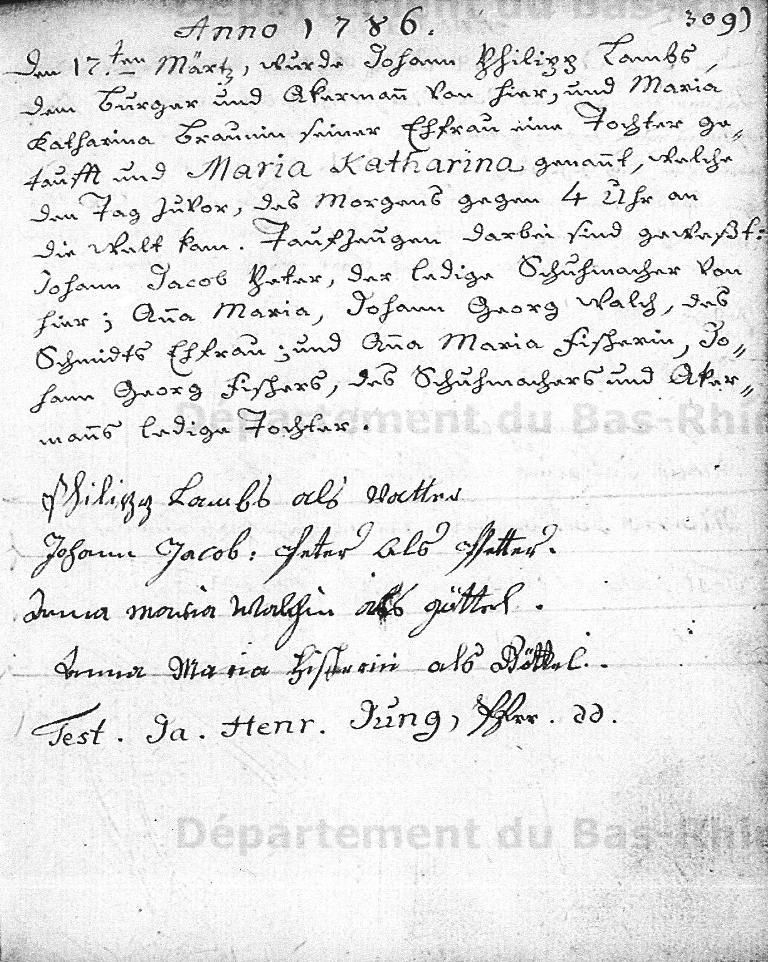 Département du Bas-Rhin
Anno 1786. 309)
Den 17.ten Märtz, wurde Johann Philipp Lambs,
dem Burger und Akermañ von hier, und Maria
Katharina Braunin seiner Ehfrau eine Tochter ge„
taufft und Maria Katharina genañt, welche
den Tag zuvor, des Morgens gegen 4 Uhr an
die Welt kam. Taufzeugen darbei sind geweßt:
Johann Jacob Peter, der ledige Schuhmacher von
hier; Aña Maria, Johann Georg Walch, des
Schmidts Ehfrau; und Aña Maria Fischerin, Jo„
hann Georg Fischers, des Schuhmachers und Aker„
mañs ledige Tochter.
Département du Bas-Rhin
Philipp Lambs als Vatter
Johann Jacob: Peter als Petter.
Anna maria Walchin als göttel.
Anna Maria Fischerin als Göttel.
Test. Ja. Henr. Jung, Pfrr. dd.
Département du Bas-Rhin